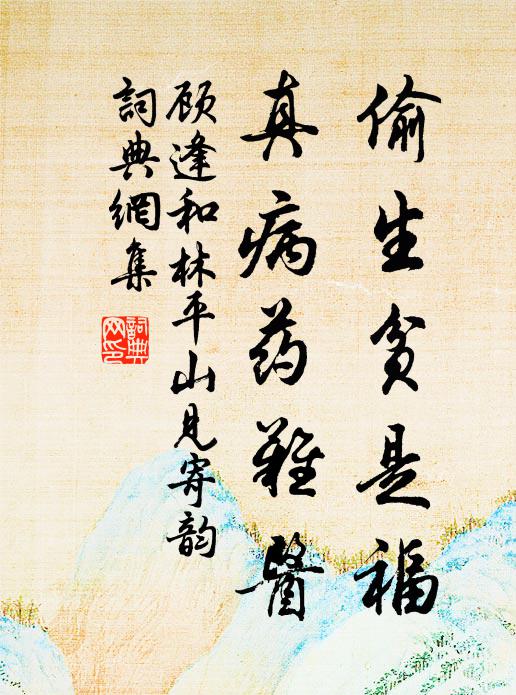 偷生贫是福
真病药难醫
顾逢和林平山见寄韵
詞典網集
詞典网印